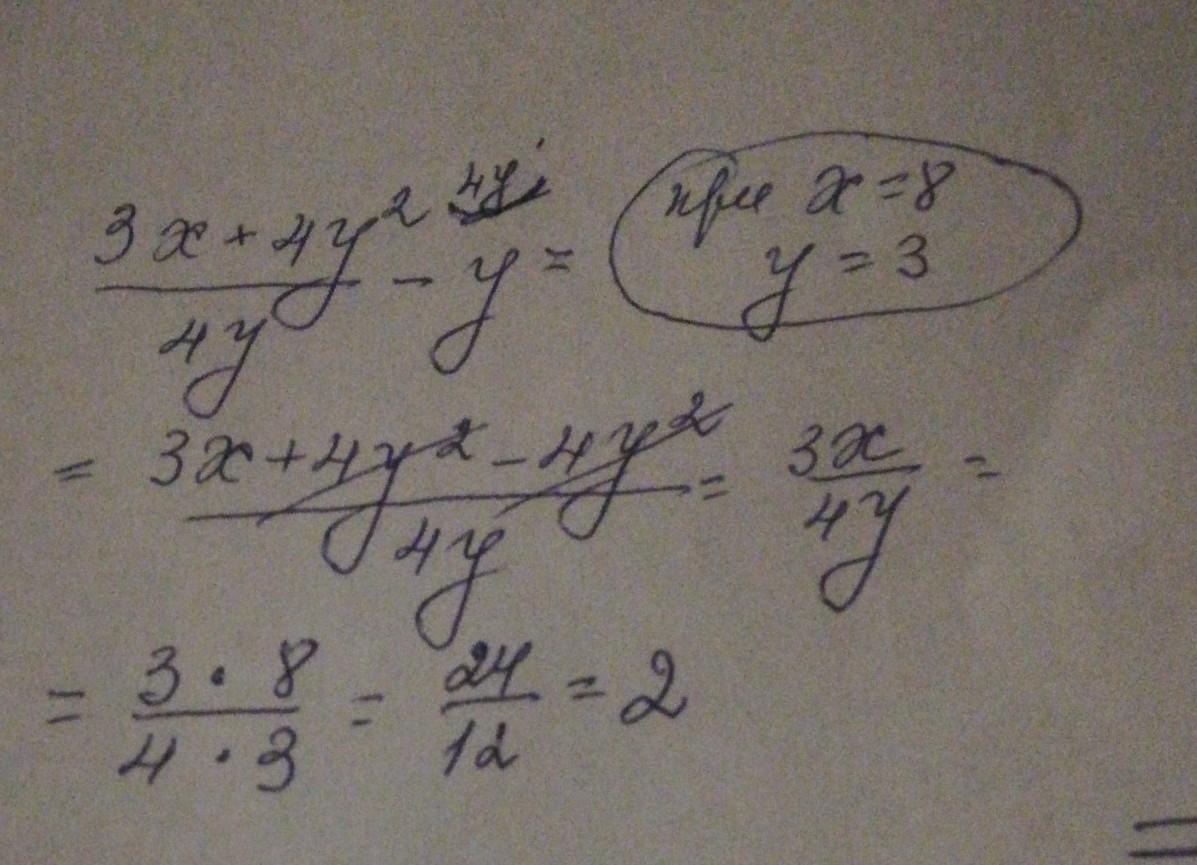 (3x + 4y²)/(4y) - y^(4y) = при x = 8
y = 3
= (3x + 4y² - 4y²)/(4y) = (3x)/(4y) =
= (3 · 8)/(4 · 3) = 24/12 = 2
=